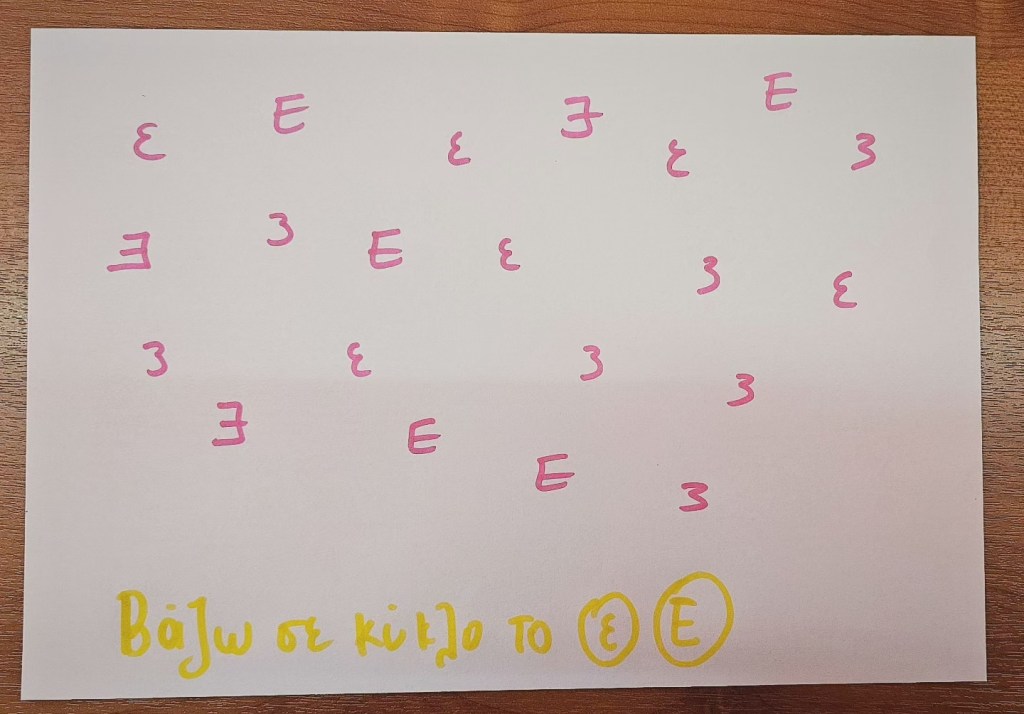 ε Ε ε Ǝ ε Ε ɜ
Ǝ ɜ Ε ε ɜ ε
ɜ ε ɜ ɜ
Ǝ Ε Ε ɜ
Βάζω σε κύκλο το ε Ε